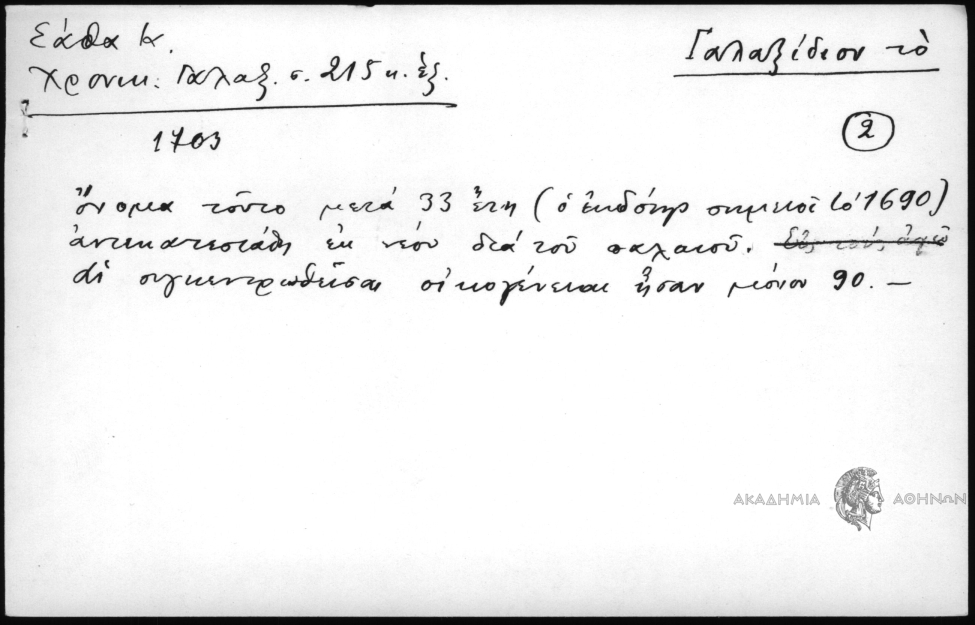 Σάθα Κ.
Χρονικ. Γαλαξ. σ. 215 κ. ἑξ.
Γαλαξείδιον τὸ
1703
2
ὄνομα τοῦτο μετά 33 ἔτη (ὁ ἐκδότης σημειοῖ τό 1690)
ἀντικατεστάθη ἐκ νέου διά τοῦ παλαιοῦ. Εὐς τούς
αἱ συγκεντρωθεῖσαι οἰκογένειαι ἦσαν μόνον 90. —
ΑΚΑΔΗΜΙΑ ΑΘΗΝΩΝ